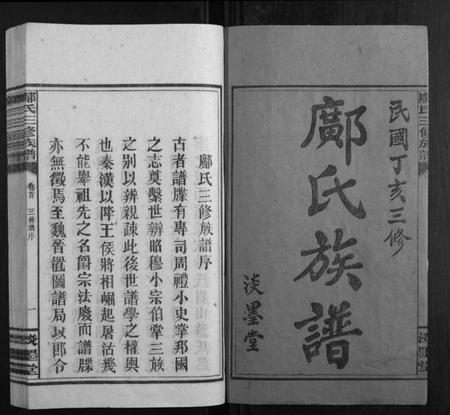 民國丁亥三修
鄺氏族譜
淡墨堂
鄺氏三修族譜
鄺氏三修族譜序
古者譜牒有專司周禮小史掌邦國
之志奠繫世辨昭穆小宗伯掌三族
之別以辨親疎此後世譜學之權輿
也秦漢以降王侯將相崛起屠沽幾
不能舉祖先之名爵宗法廢而譜牒
亦無徵焉至魏晉置圖譜局以郎令
鄺氏三修族譜
卷首
三修譜序
一
淡墨堂